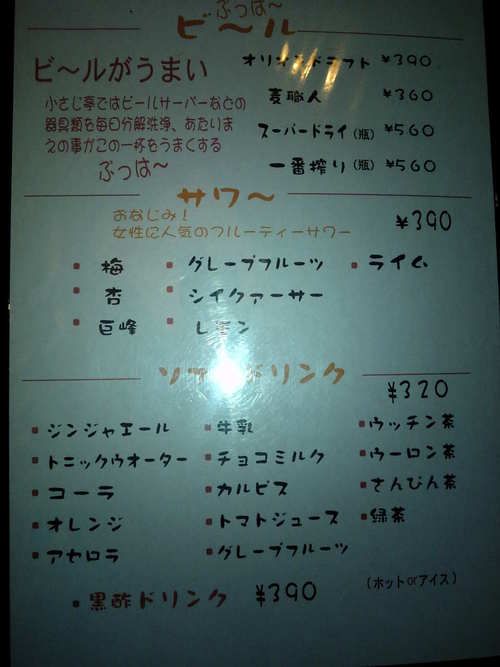 ぷっは～
ビ～ル
ビ～ルがうまい
オリオンドラフト ¥390
小さじ亭ではビールサーバーなどの
器具類を毎日分解洗浄、あたりま
えの事がこの一杯をうまくする
ぷっは～
麦職人 ¥360
スーパードライ(瓶) ¥560
一番搾り(瓶) ¥560
サワ～
おなじみ!
女性に人気のフルーティーサワー
¥390
梅 グレープフルーツ ライム
杏 シイクァーサー
巨峰 レモン
ソフトドリンク
¥320
ジンジャエール 牛乳 ウッチン茶
トニックウオーター チョコミルク ウーロン茶
コーラ カルピス さんぴん茶
オレンジ トマトジュース 緑茶
アセロラ グレープフルーツ
(ホットorアイス)
黒酢ドリンク ¥390